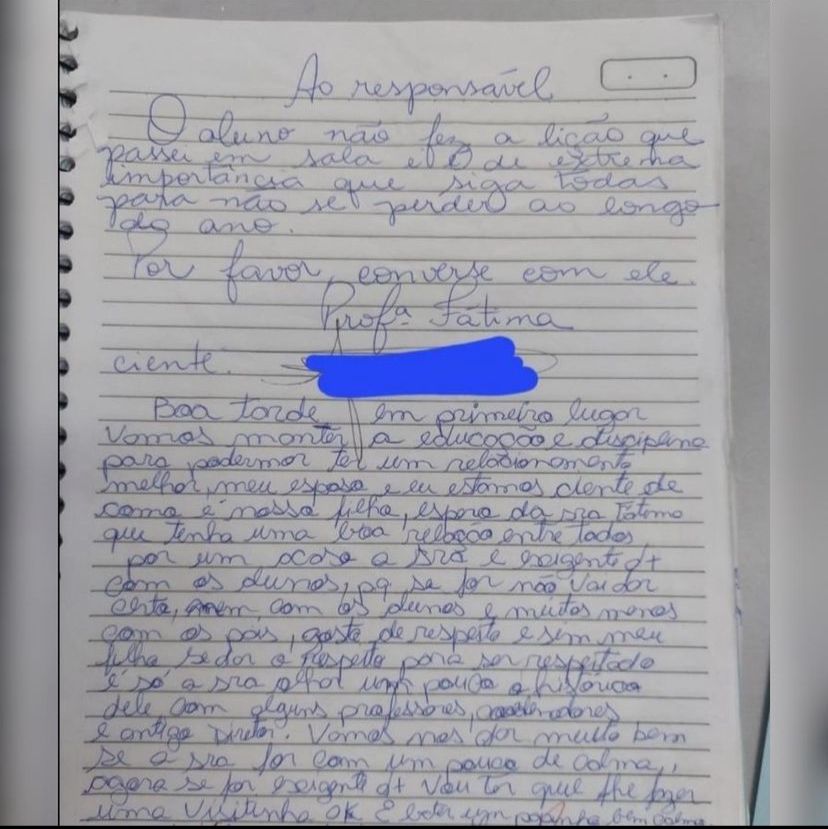 Ao responsável
O aluno não fez a lição que
passei em sala e é de extrema
importância que siga todas
para não se perder ao longo
do ano.
Por favor, converse com ele.
Profª Fátima
ciente:
Boa tarde, em primeiro lugar
Vamos manter a educação e disciplina
para podermor ter um relacionamento
melhor, meu esposo e eu estamos ciente de
como é nosso filho, espero da sra Fátima
que tenha uma boa relação entre todos,
por um acaso a srª é exigente d+
com os alunos, pq se for não vai dar
certo, nem com os alunos e muitos menos
com os pais, gosto de respeito e sim meu
filho se dar o respeito para ser respeitado
é só a sra olhar um pouco o histórico
dele com alguns professores, coordenadores
e antigo Diretor. Vamos nos dar muito bem
se a sra for com um pouco de calma,
agora se for exigente d+ vou ter que lhe fazer
uma visitinha OK E bater um papinho bem calmo